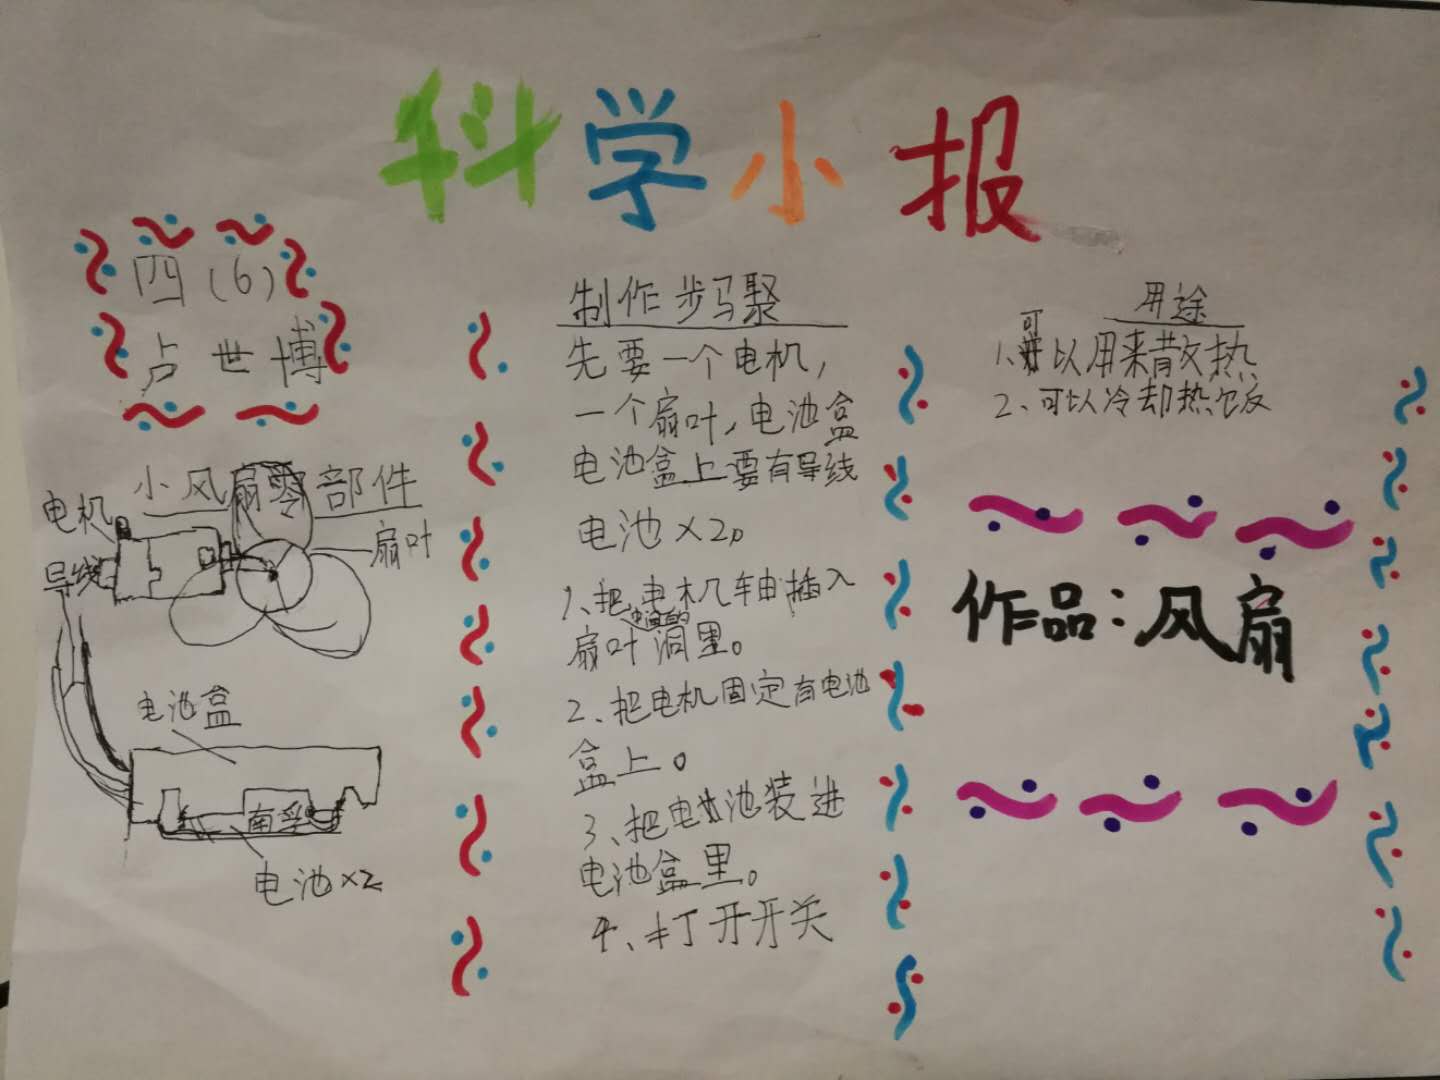 科学小报
四(6)
卢世博
小风扇零部件
电机
扇叶
导线
电池盒
南孚
电池×2
制作步骤
先要一个电机,
一个扇叶,电池盒
电池盒上要有导线
电池×2。
1、把电机轴插入
扇叶中间的洞里。
2、把电机固定有电池
盒上。
3、把电池装进
电池盒里。
4、打开开关
用途
1.可以用来散热
2、可以冷却热饭
作品:风扇